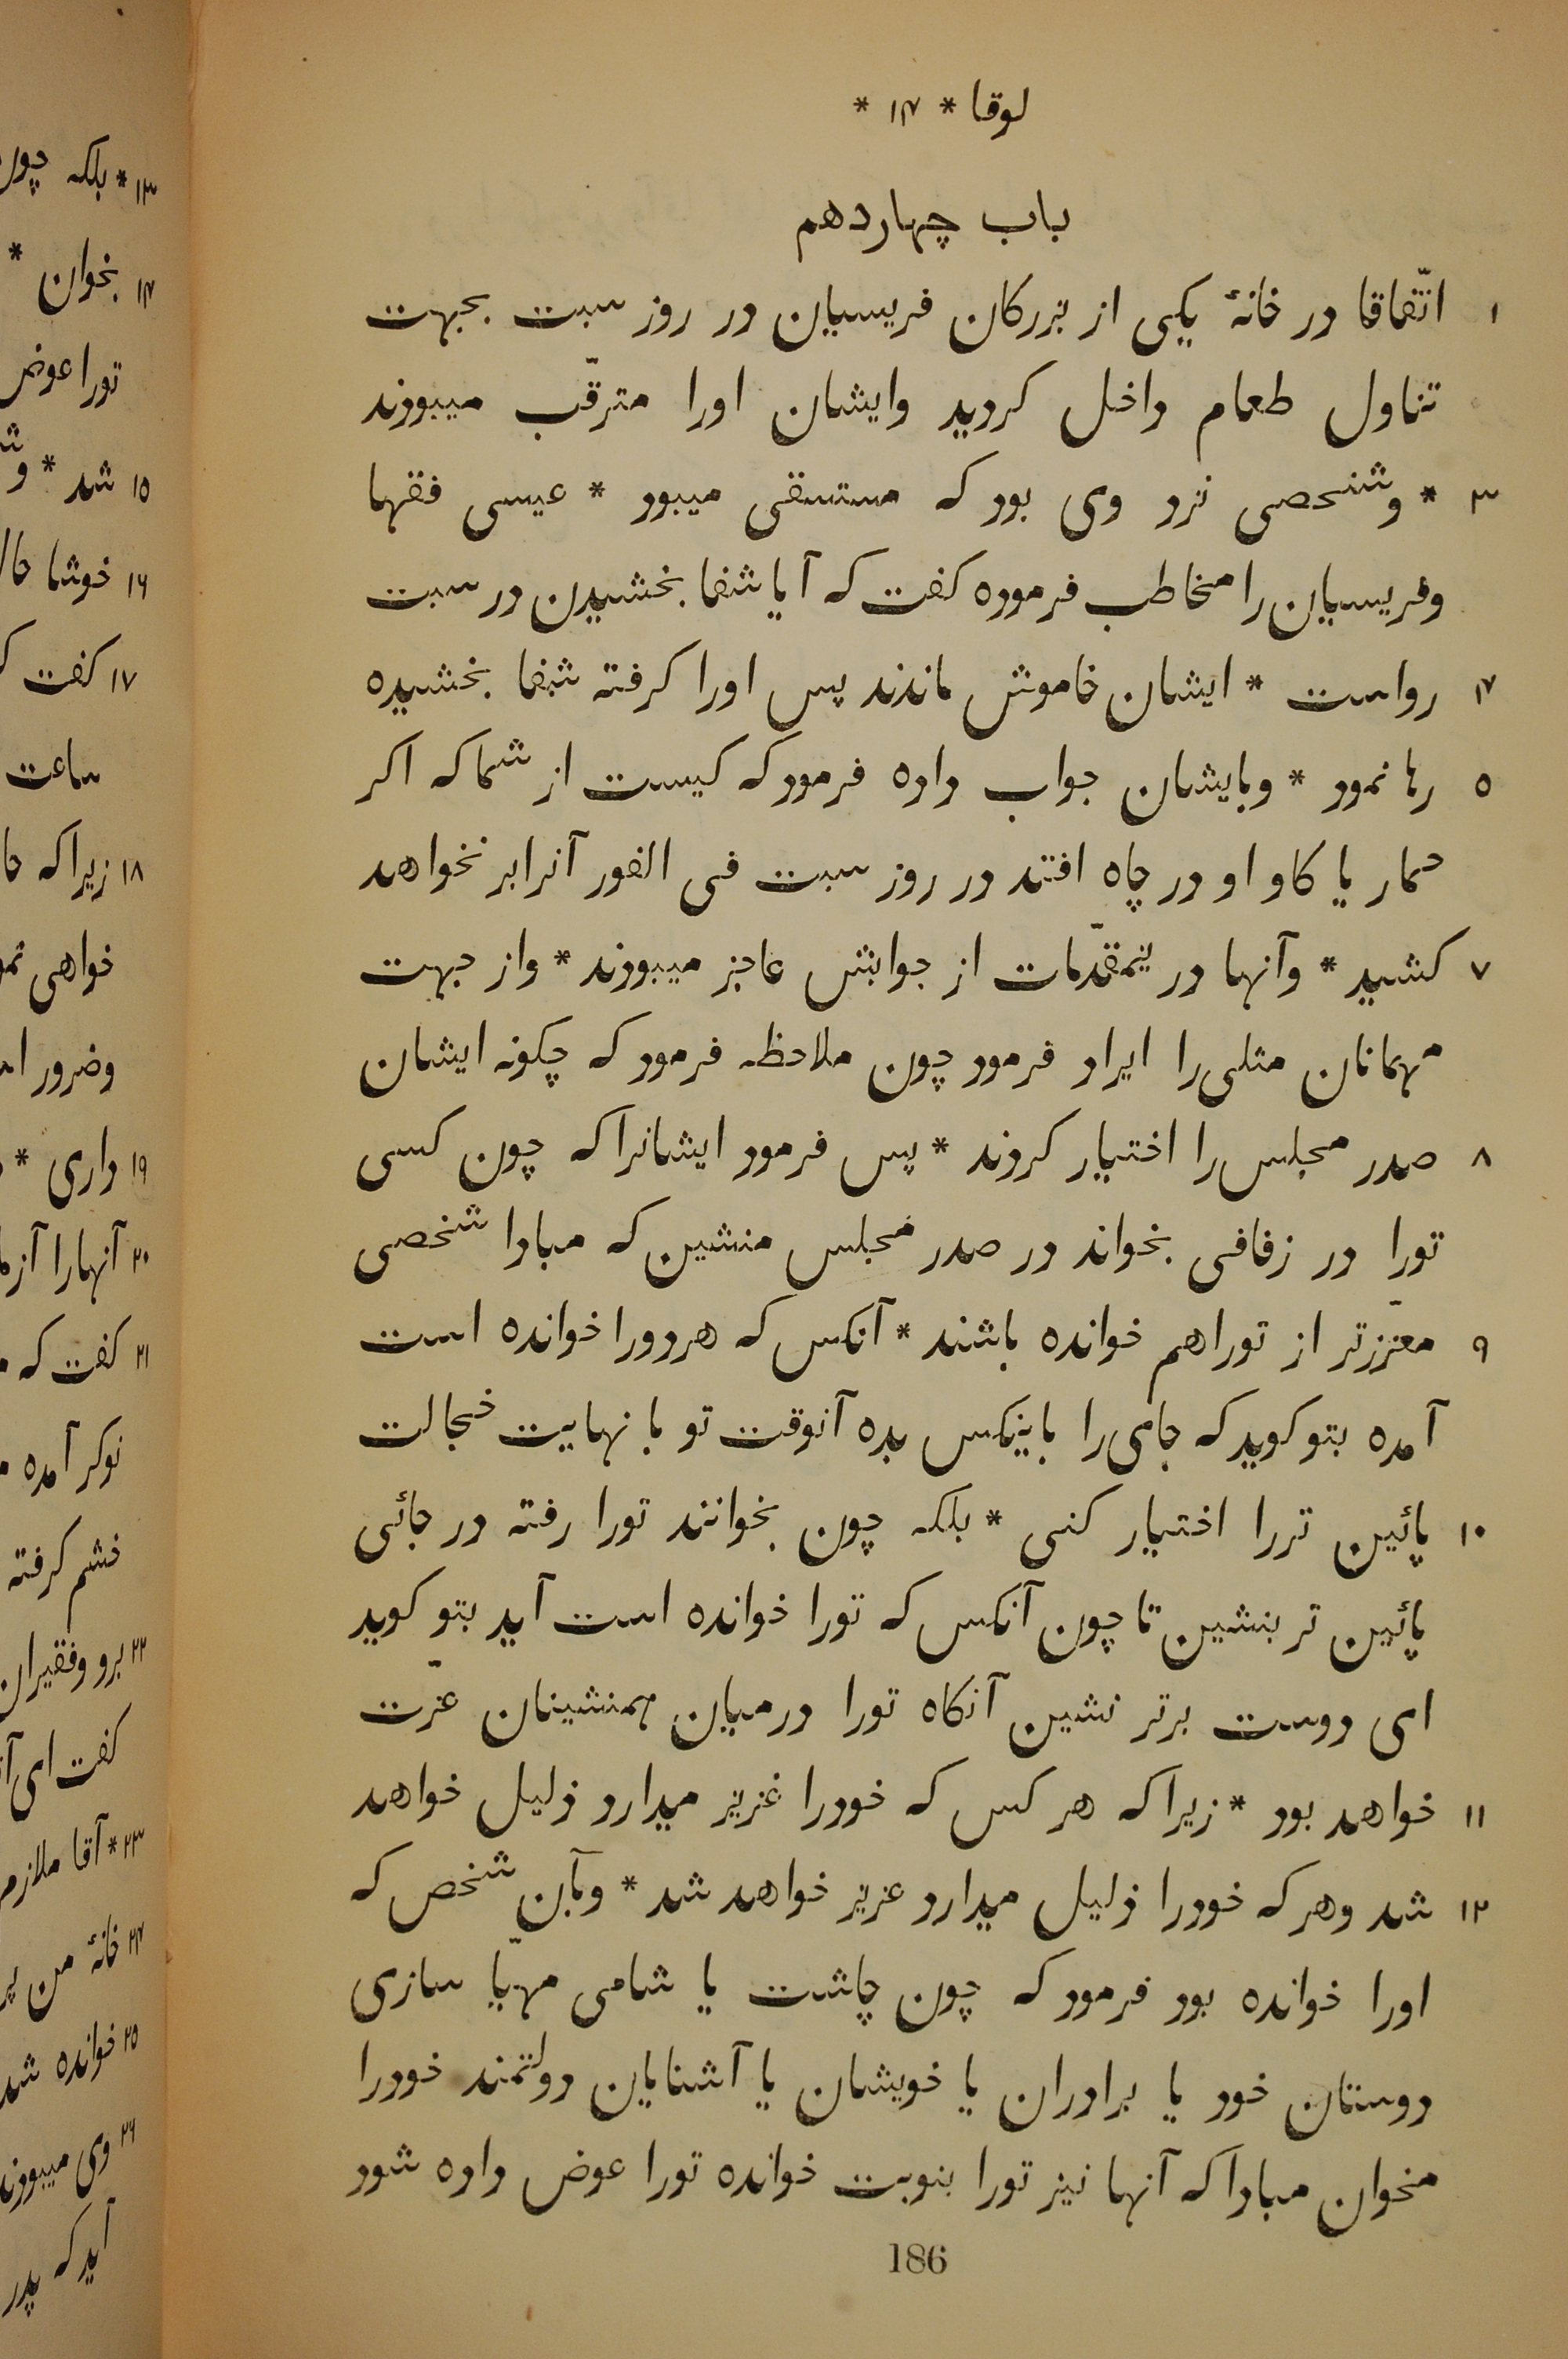 لوقا * ۱۴ *
باب چهاردهم
۱ اتّفاقا در خانهٔ یکی از بزرکان فریسیان در روز سبت بجهت
تناول طعام داخل کردید وایشان اورا مترقّب میبودند
۳ * وشخصی نزد وی بود که مستسقی میبود * عیسی فقها
وفریسیان را مخاطب فرموده کفت که آیا شفا بخشیدن در سبت
۴ رواست * ایشان خاموش ماندند پس اورا کرفته شفا بخشیده
۵ رها نمود * وبایشان جواب داده فرمود که کیست از شما که اکر
حمار یا کاو او در چاه افتد در روز سبت فی الفور آنرا بر نخواهد
۷ کشید * وآنها در ینمقدّمات از جوابش عاجز میبودند * واز جهت
مهمانان مثلی را ایراد فرمود چون ملاحظه فرمود که چکونه ایشان
۸ صدر مجلس را اختیار کردند * پس فرمود ایشانرا که چون کسی
تورا در زفافی بخواند در صدر مجلس منشین که مبادا شخصی
۹ معزّزتر از توراهم خوانده باشند * آنکس که هردورا خوانده است
آمده بتو کوید که جای را باینکس بده آنوقت تو با نهایت خجالت
۱۰ پائین تررا اختیار کنی * بلکه چون بخوانند تورا رفته در جائی
پائین تر بنشین تا چون آنکس که تورا خوانده است آید بتو کوید
ای دوست برتر نشین آنکاه تورا درمیان همنشینان عزّت
۱۱ خواهد بود * زیرا که هر کس که خودرا عزیز میدارد ذلیل خواهد
۱۲ شد وهر که خودرا ذلیل میدارد عزیز خواهد شد * وبآن شخص که
اورا خوانده بود فرمود که چون چاشت یا شامی مهیّا سازی
دوستان خود یا برادران یا خویشان یا آشنایان دولتمند خودرا
مخوان مبادا که آنها نیز تورا بنوبت خوانده تورا عوض داده شود
186
۱۳ * بلکه چون
۱۴ بخوان *
تورا عوض
۱۵ شد *
۱۶ خوشا
۱۷ کفت
ساعت
۱۸ زیرا که
خواهی
وضرور
۱۹ داری *
۲۰ آنهارا
۲۱ کفت که
نوکر آمده
خشم کرفته
۲۲ برو وفقیران
کفت ای
۲۳ * آقا
۲۴ خانهٔ من
۲۵ خوانده
۲۶ وی میبودند
آید که پدر